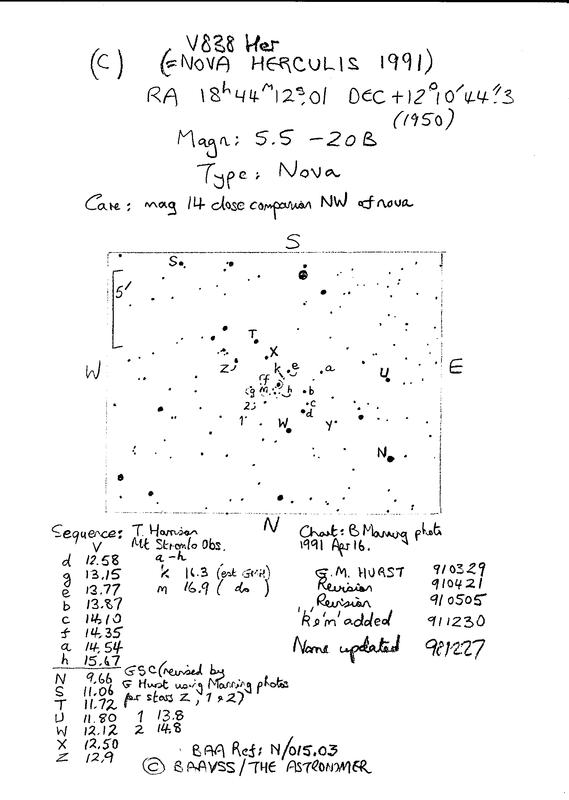 V838 Her
(C) (=NOVA HERCULIS 1991)
RA 18h44m12s.01 DEC+12°10'44".3
(1950)
Magn: 5.5 -20B
Type: Nova
Care: mag 14 close companion NW of nova
S
S
5'
T
X
Z
k
e
a
U
W
E
f
g
m
h
b
2
c
d
1
W
y
N
N
Sequence: T. Harrison
V Mt Stromlo Obs.
a-h
d 12.58
g 13.15
e 13.77
b 13.87
c 14.10
f 14.35
a 14.54
h 15.67
k 16.3 (est GMH)
m 16.9 ( do )
N 9.66
S 11.06
T 11.72
U 11.80
W 12.12
X 12.50
Z 12.9
GSC (revised by
G Hurst using Manning photos
for stars Z, 1 & 2)
1 13.8
2 14.8
Chart: B Manning photo
1991 Apr 16.
G.M. HURST 910329
Revision 910421
Revision 910505
'k & m' added 911230
Name updated 981227
BAA Ref: N/015.03
© BAAVSS/THE ASTRONOMER